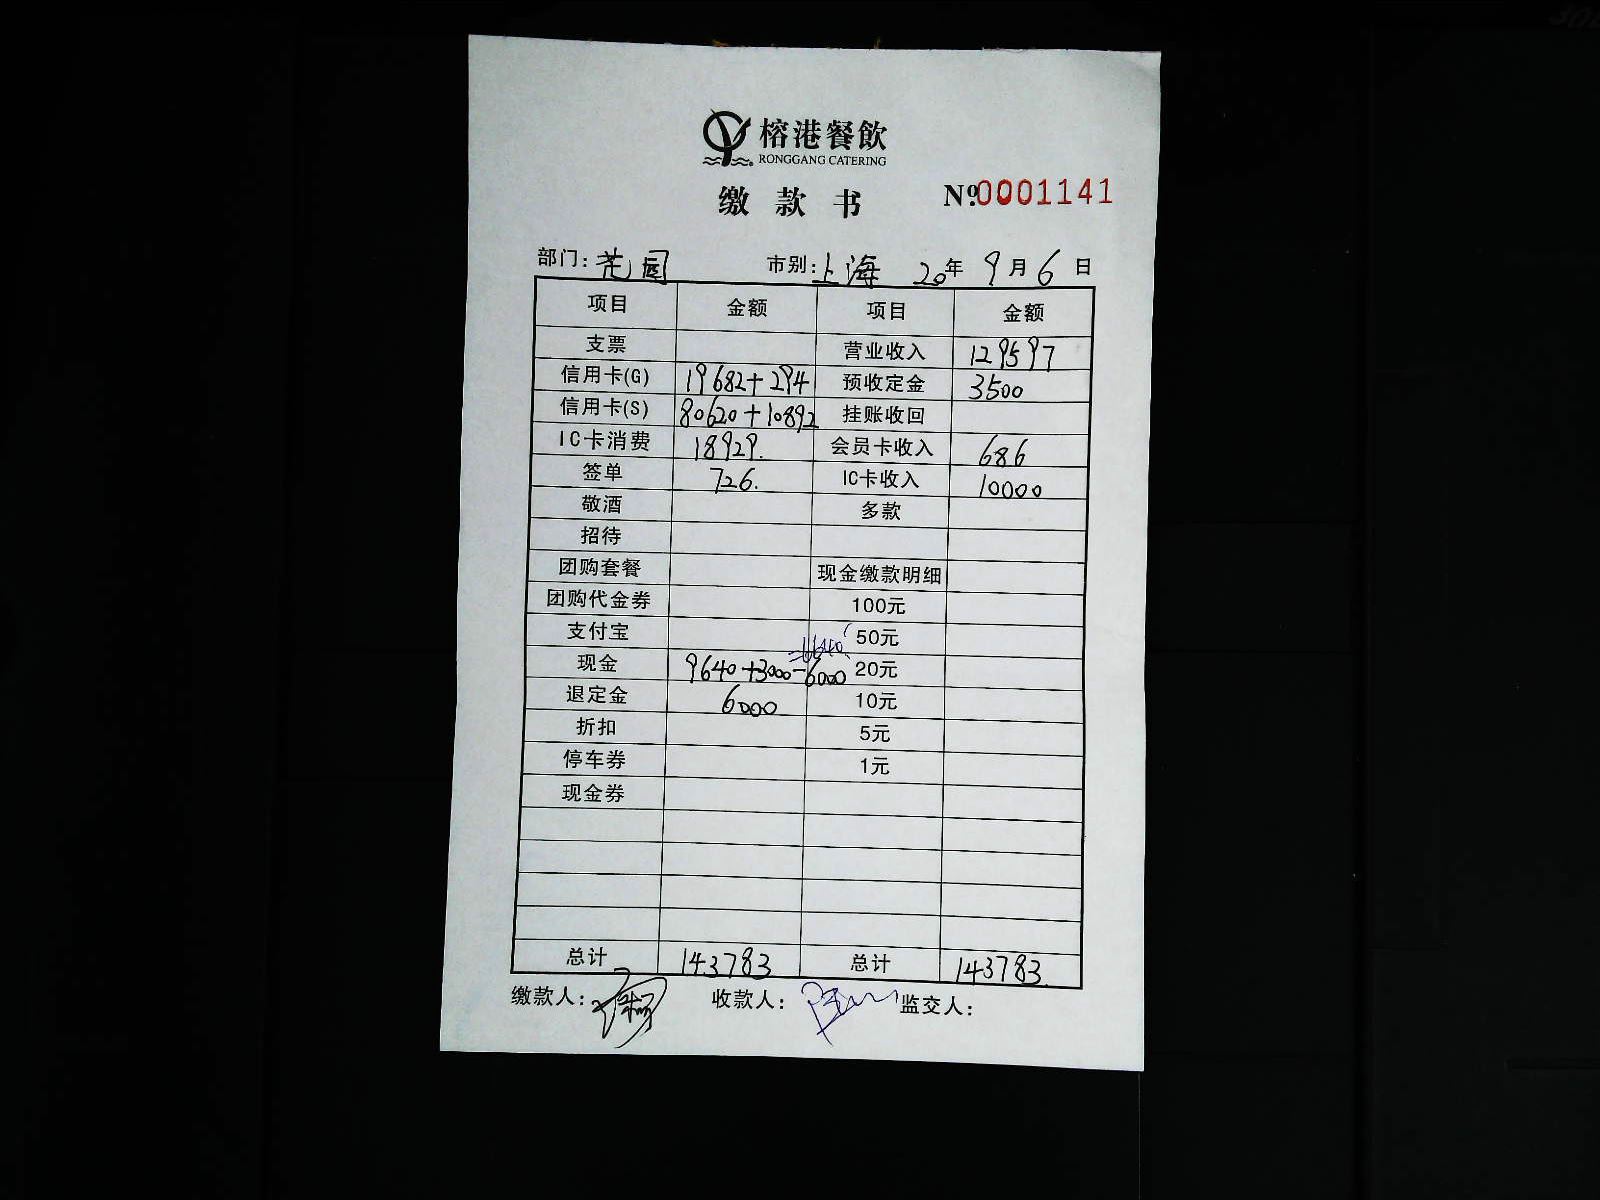 榕港餐飲
RONGGANG CATERING
缴款书 Nº.0001141
部门: 花园 市别: 上海 20年 9月 6日
项目 金额 项目 金额
支票 营业收入 129597
信用卡(G) 19682+294 预收定金 3500
信用卡(S) 80620+10892 挂账收回
IC卡消费 18929. 会员卡收入 686
签单 726. IC卡收入 10000
敬酒 多款
招待
团购套餐 现金缴款明细
团购代金券 100元
支付宝 50元
=6640
现金 9640+3000-6000 20元
退定金 6000 10元
折扣 5元
停车券 1元
现金券
总计 143783 总计 143783.
缴款人: 收款人: 监交人: